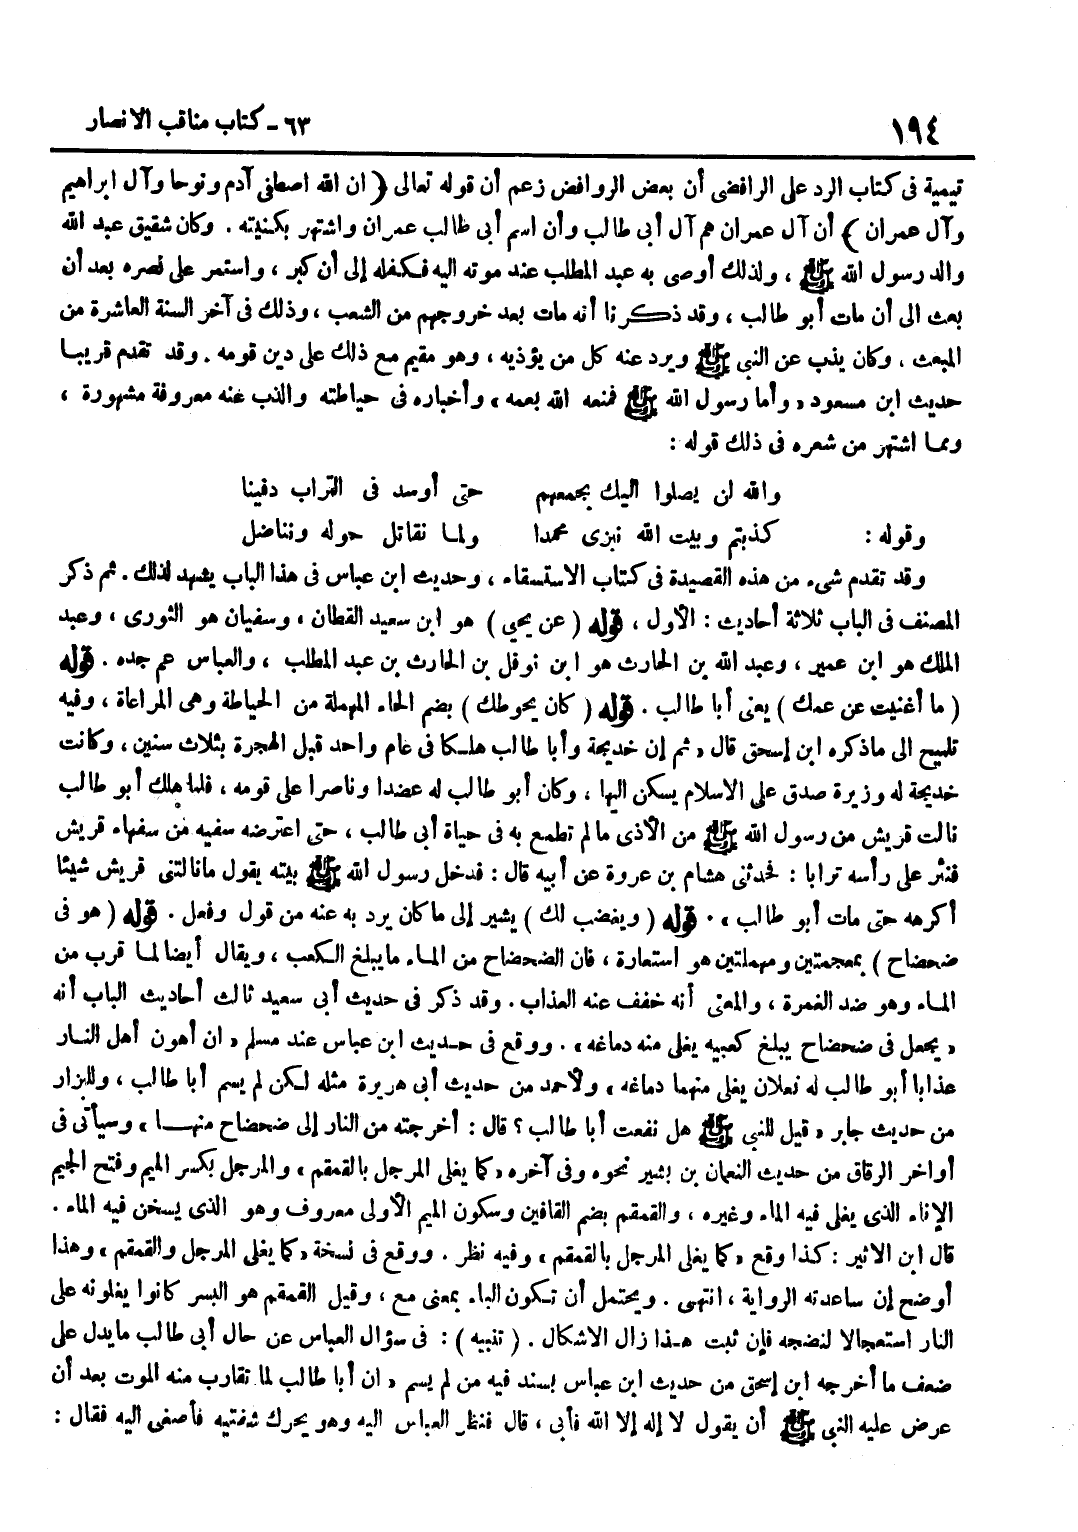 ١٩٤
٦٣ - كتاب مناقب الانصار
تيمية فى كتاب الرد على الرافضى أن بعض الروافض زعم أن قوله تعالى ( ان الله اصطفى آدم ونوحا وآل ابراهيم
وآل عمران ) أن آل عمران هم آل أبى طالب وأن اسم أبى طالب عمران واشتهر بكنيته . وكان شقيق عبد الله
والد رسول الله ﷺ ، ولذلك أوصى به عبد المطلب عند موته اليه فكفله إلى أن كبر ، واستمر على نصره بعد أن
بعث الى أن مات أبو طالب ، وقد ذكرنا أنه مات بعد خروجهم من الشعب ، وذلك فى آخر السنة العاشرة من
المبعث . وكان يذب عن النبى ﷺ ويرد عنه كل من يؤذيه ، وهو مقيم مع ذلك على دين قومه . وقد تقدم قريبا
حديث ابن مسعود « وأما رسول الله ﷺ فمنعه الله بعمه » وأخباره فى حياطته والذب عنه معروفة مشهورة ،
ومما اشتهر من شعره فى ذلك قوله :
والله لن يصلوا اليك بجمعهم حتى أوسد فى التراب دفينا
وقوله : كذبتم وبيت الله نبزى محمدا ولما نقاتل حوله ونناضل
وقد تقدم شىء من هذه القصيدة فى كتاب الاستسقاء ، وحديث ابن عباس فى هذا الباب يشهد لذلك . ثم ذكر
المصنف فى الباب ثلاثة أحاديث : الأول ، قوله ( عن يحيى ) هو ابن سعيد القطان ، وسفيان هو الثورى ، وعبد
الملك هو ابن عمير ، وعبد الله بن الحارث هو ابن نوفل بن الحارث بن عبد المطلب ، والعباس عم جده . قوله
( ما أغنيت عن عمك ) يعنى أبا طالب . قوله ( كان يحوطك ) بضم الحاء المهملة من الحياطة وهى المراعاة ، وفيه
تلميح الى ماذكره ابن إسحق قال « ثم إن خديجة وأبا طالب هلكا فى عام واحد قبل الهجرة بثلاث سنين ، وكانت
خديجة له وزيرة صدق على الاسلام يسكن اليها ، وكان أبو طالب له عضدا وناصرا على قومه ، فلما هلك أبو طالب
نالت قريش من رسول الله ﷺ من الأذى ما لم تطمع به فى حياة أبى طالب ، حتى اعترضه سفيه من سفهاء قريش
فنثر على رأسه ترابا : فحدثنى هشام بن عروة عن أبيه قال : فدخل رسول الله ﷺ بيته يقول مانالتنى قريش شيئا
أكرهه حتى مات أبو طالب » . قوله ( ويغضب لك ) يشير إلى ما كان يرد به عنه من قول وفعل . قوله ( هو فى
ضحضاح ) بمعجمتين ومهملتين هو استعارة ، فان الضحضاح من الماء مايبلغ الكعب ، ويقال أيضا لما قرب من
الماء وهو ضد الغمرة ، والمعنى أنه خفف عنه العذاب . وقد ذكر فى حديث أبى سعيد ثالث أحاديث الباب أنه
« يجعل فى ضحضاح يبلغ كعبيه يغلى منه دماغه » . ووقع فى حديث ابن عباس عند مسلم « ان أهون أهل النار
عذابا أبو طالب له نعلان يغلى منهما دماغه » ولأحمد من حديث أبى هريرة مثله لكن لم يسم أبا طالب ، وللبزار
من حديث جابر « قيل للنبى ﷺ هل نفعت أبا طالب ؟ قال : أخرجته من النار إلى ضحضاح منها » وسيأتى فى
أواخر الرقاق من حديث النعمان بن بشير نحوه وفى آخره « كما يغلى المرجل بالقمقم » والمرجل بكسر الميم وفتح الجيم
الإناء الذى يغلى فيه الماء وغيره ، والقمقم بضم القافين وسكون الميم الأولى معروف وهو الذى يسخن فيه الماء .
قال ابن الاثير : كذا وقع « كما يغلى المرجل بالقمقم » وفيه نظر . ووقع فى نسخة « كما يغلى المرجل والقمقم » وهذا
أوضح إن ساعدته الرواية ، انتهى . ويحتمل أن تكون الباء بمعنى مع ، وقيل القمقم هو البسر كانوا يغلونه على
النار استعجالا لنضجه فإن ثبت هذا زال الاشكال . ( تنبيه ) : فى سؤال العباس عن حال أبى طالب مايدل على
ضعف ما أخرجه ابن إسحق من حديث ابن عباس بسند فيه من لم يسم « ان أبا طالب لما تقارب منه الموت بعد أن
عرض عليه النبى ﷺ أن يقول لا إله إلا الله فأبى ، قال فنظر العباس اليه وهو يحرك شفتيه فأصغى اليه فقال :